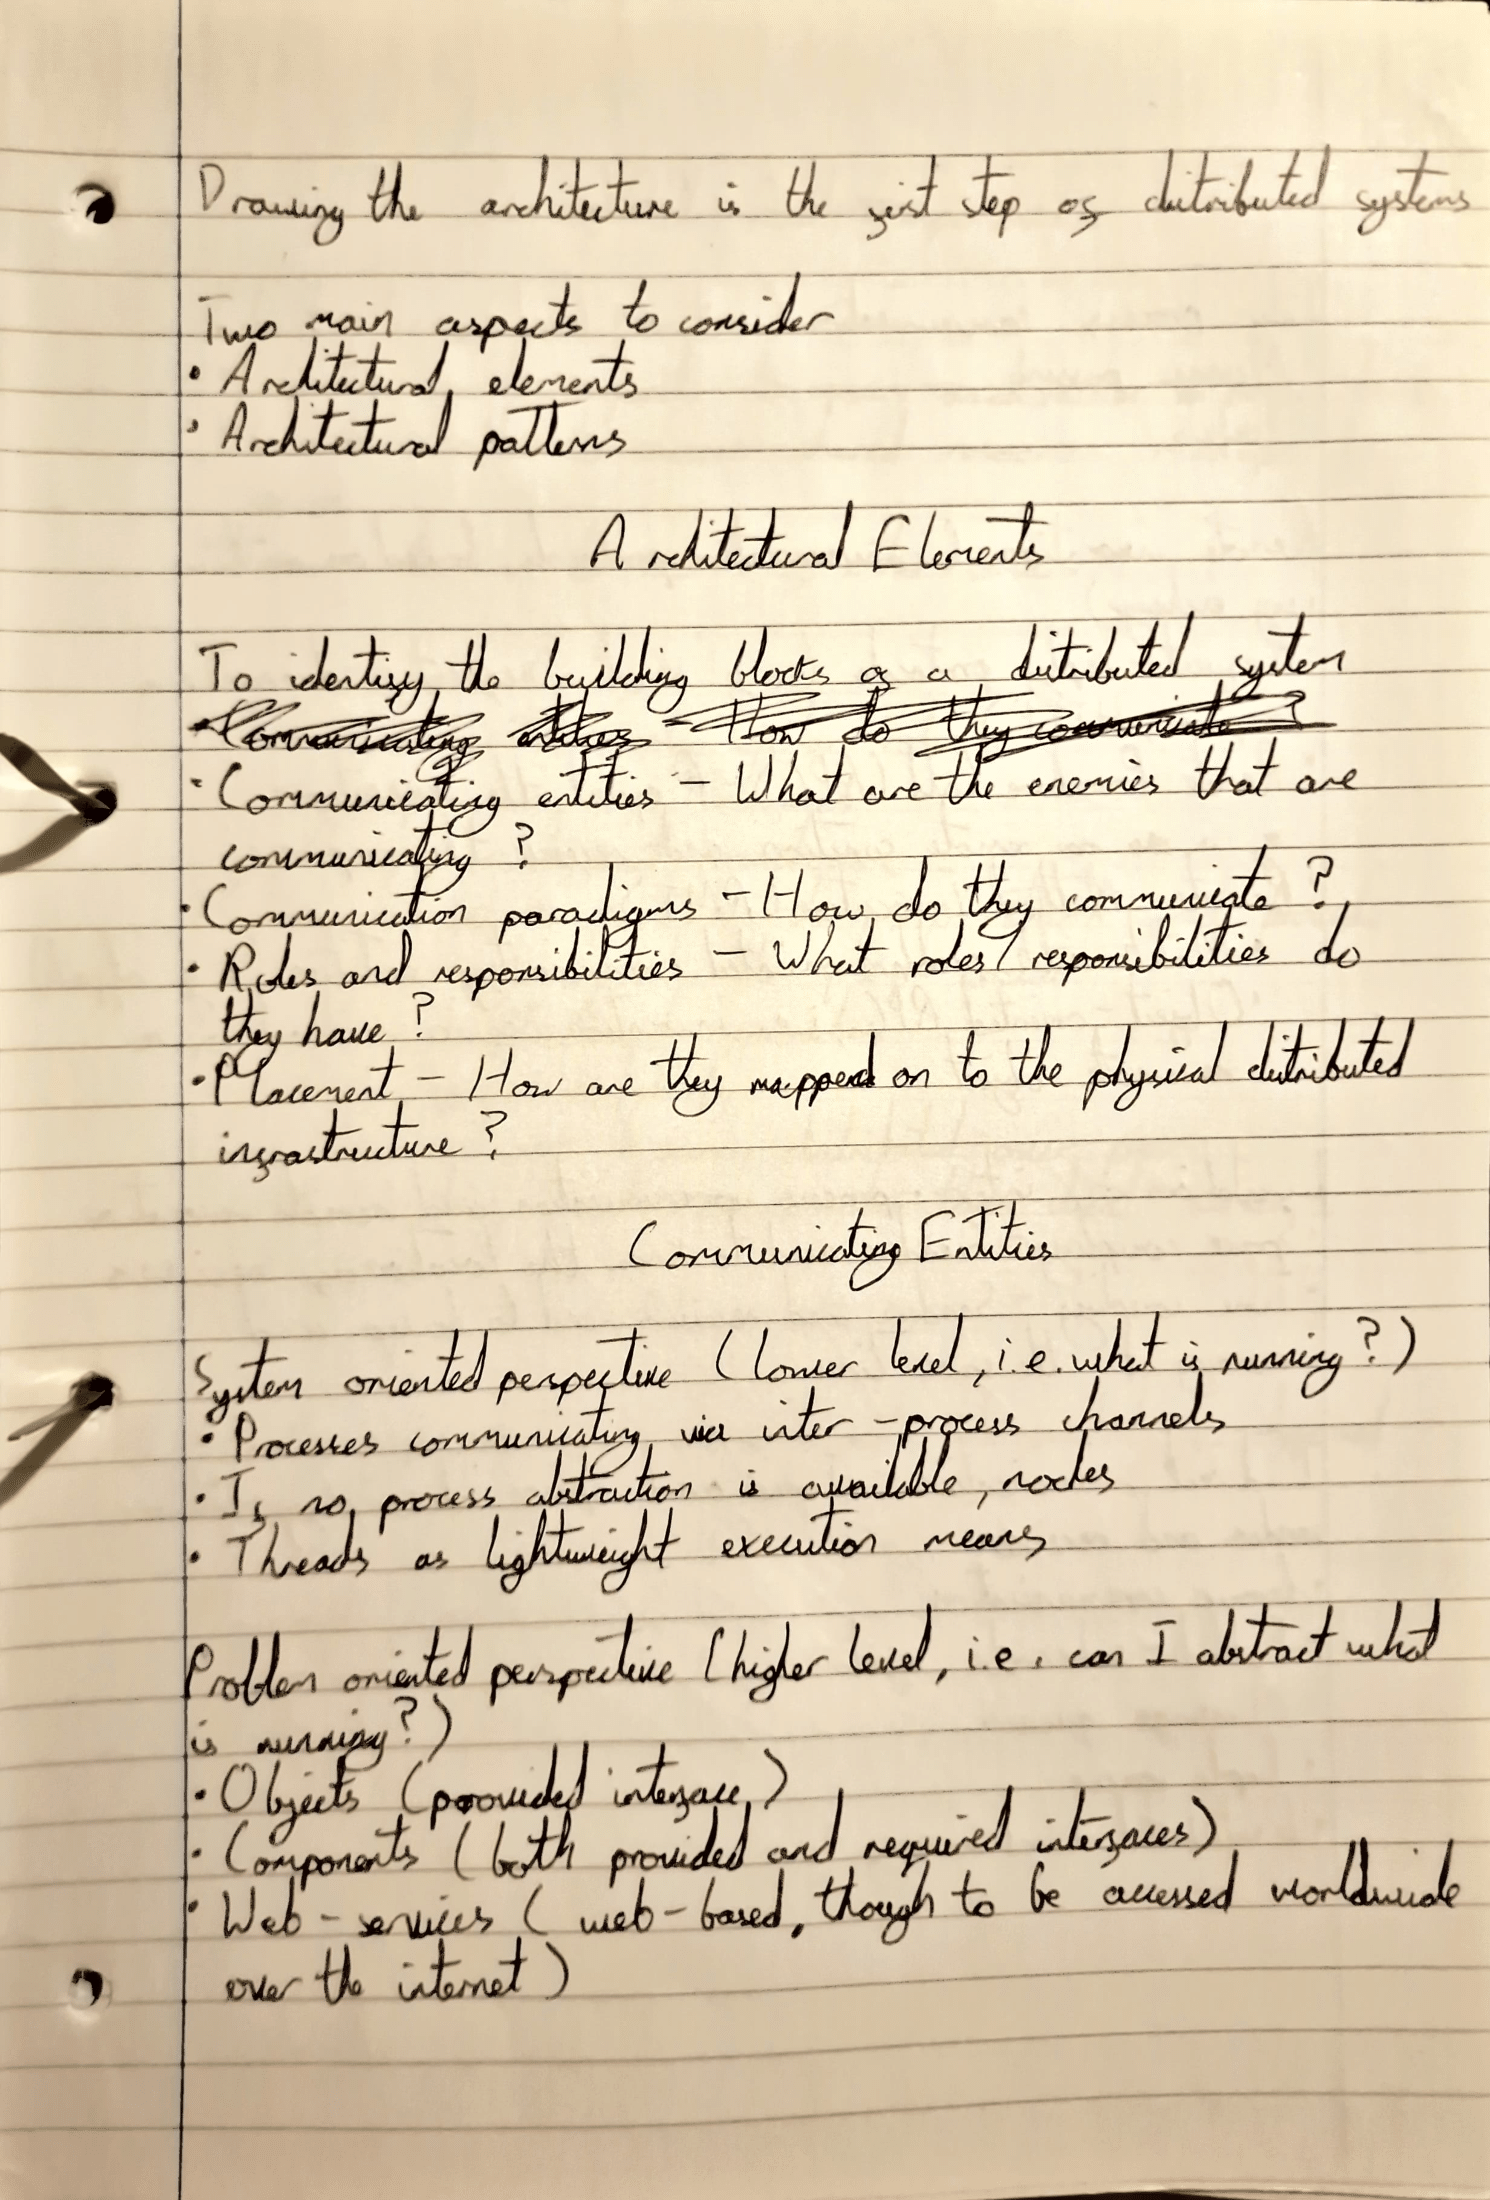 Drawing the architecture is the first step of distributed systems
Two main aspects to consider
• Architectural elements
• Architectural patterns
Architectural Elements
To identify the building blocks of a distributed system
• Communicating entities - How do they communicate?
• Communicating entities - What are the enemies that are
communicating?
• Communication paradigms - How do they communicate?
• Roles and responsibilities - What roles/responsibilities do
they have?
• Placement - How are they mapped on to the physical distributed
infrastructure?
Communicating Entities
System oriented perspective (lower level, i.e. what is running?)
• Processes communicating via inter-process channels
• If no process abstraction is available, nodes
• Threads as lightweight execution means
Problem oriented perspective (higher level, i.e. can I abstract what
is running?)
• Objects (provided interface)
• Components (both provided and required interfaces)
• Web-services (web-based, though to be accessed worldwide
over the internet)